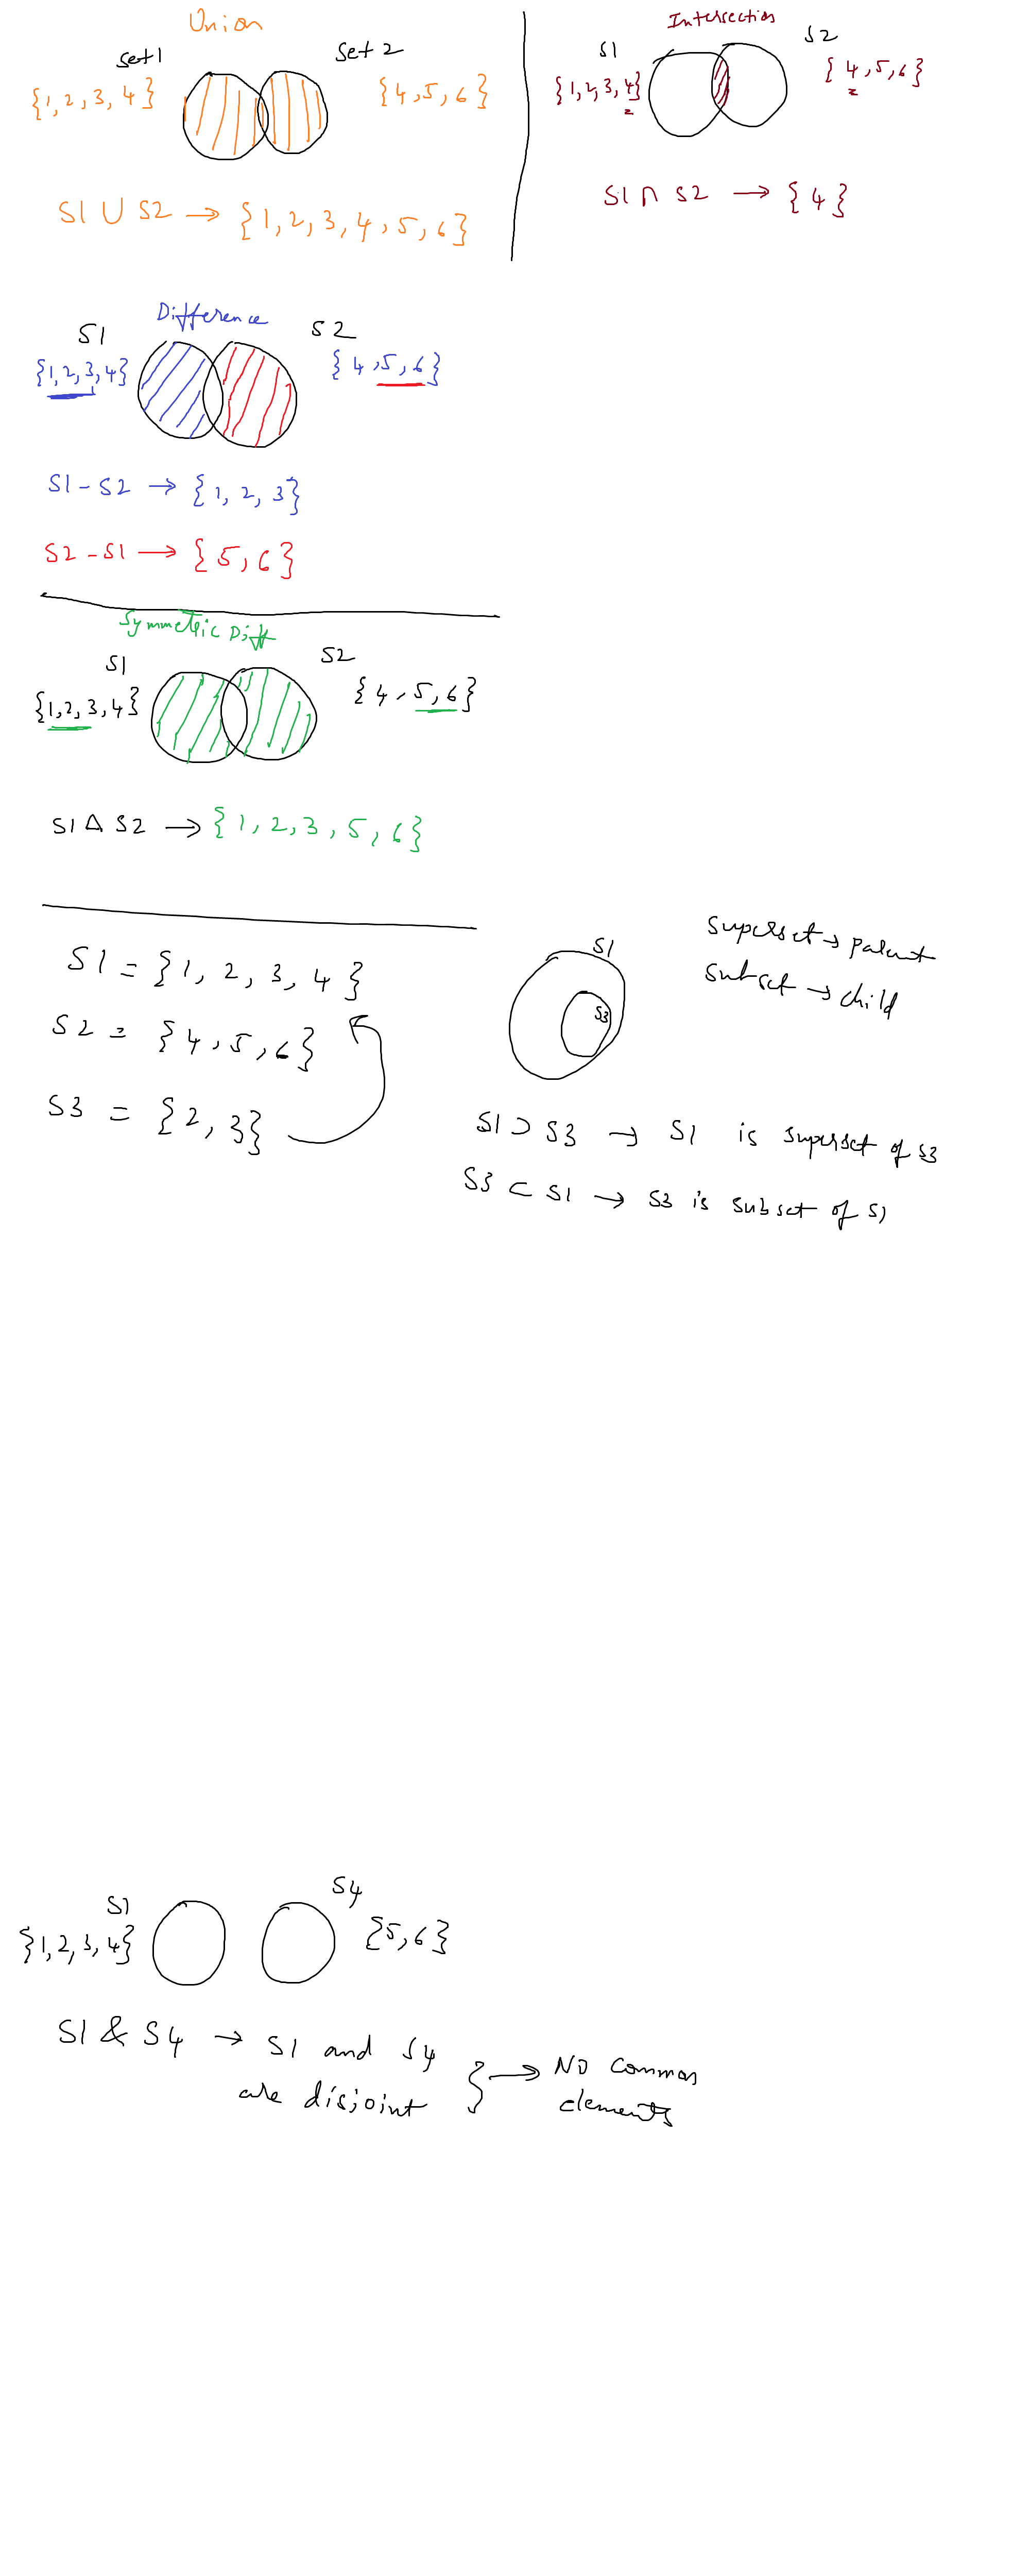 Union
set1
set2
{1, 2, 3, 4}
{4, 5, 6}
S1 ∪ S2 → {1, 2, 3, 4, 5, 6}
Intersection
S1
S2
{1, 2, 3, 4}
{4, 5, 6}
S1 ∩ S2 → {4}
Difference
S1
S2
{1, 2, 3, 4}
{4, 5, 6}
S1 - S2 → {1, 2, 3}
S2 - S1 → {5, 6}
Symmetric Diff
S1
S2
{1, 2, 3, 4}
{4, 5, 6}
S1 Δ S2 → {1, 2, 3, 5, 6}
S1 = {1, 2, 3, 4}
S2 = {4, 5, 6}
S3 = {2, 3}
S1
S3
Superset → parent
Subset → child
S1 ⊃ S3 → S1 is superset of S3
S3 ⊂ S1 → S3 is subset of S1
S1
S4
{1, 2, 3, 4}
{5, 6}
S1 & S4 → S1 and S4
are disjoint } → No common
elements